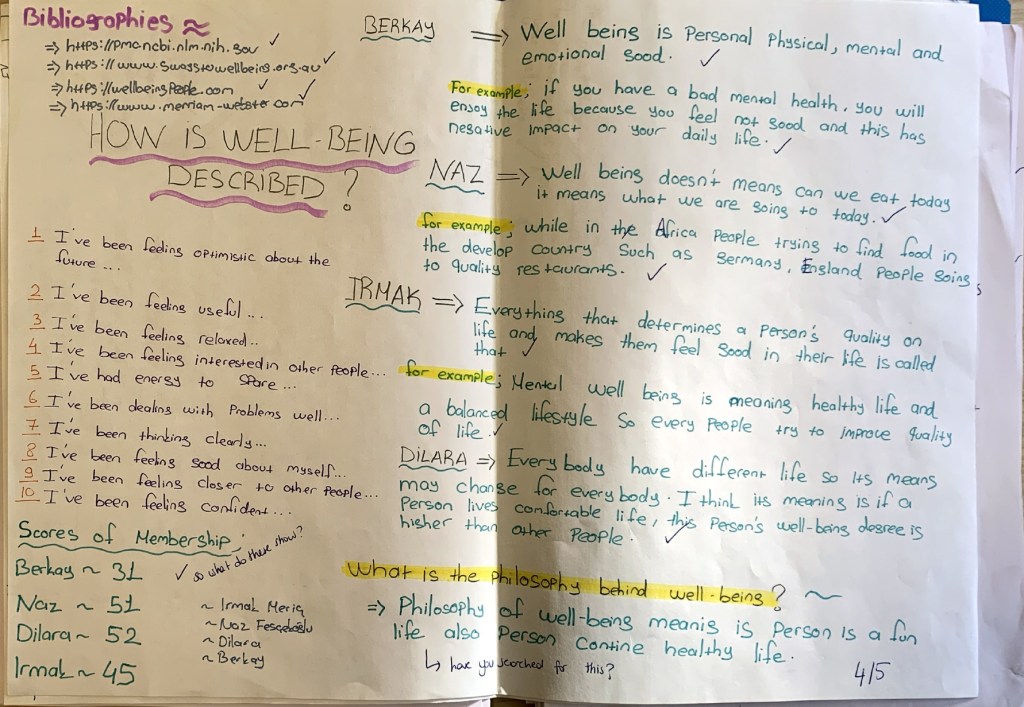 Bibliographies ≈
⇒ https://pmc.ncbi.nlm.nih.gov ✓
⇒ https://www.swagstowellbeing.org.au ✓
⇒ https://wellbeingPeople.com ✓
⇒ https://www.merriam-webster.com ✓
HOW IS WELL-BEING
DESCRIBED?
1 I've been feeling optimistic about the
future ...
2 I've been feeling useful ...
3 I've been feeling relaxed..
4 I've been feeling interested in other people...
5 I've had energy to spare ...
6 I've been dealing with Problems well...
7 I've been thinking clearly...
8 I've been feeling good about myself...
9 I've been feeling closer to other people...
10 I've been feeling confident ...
Scores of Membership:
✓ so what do these show?
Berkay ~ 31
Naz ~ 51
Dilara ~ 52
Irmak ~ 45
~ Irmak Meriç
~ Naz
~ Dilara
~ Berkay
BERKAY ⇒ Well being is Personal Physical, mental and
emotional good. ✓
For example; if you have a bad mental health. you will
enjoy the life because you feel not good and this has
negative impact on your daily life. ✓
NAZ ⇒ Well being doesn't means can we eat today
it means what we are going to today. ✓
for example; while in the Africa People trying to find food in
the develop country such as Germany, England People going
to quality restaurants. ✓
IRMAK ⇒ Everything that determines a Person's quality on
life and makes them feel good in their life is called
that ✓
for example; Mental well being is meaning healthy life and
a balanced lifestyle so every people try to improve quality
of life. ✓
DiLARA ⇒ Everybody have different life so Its means
may change for everybody. I think its meaning is if a
Person lives comfortable life, this Person's well-being degree is
higher than other People. ✓
What is the philosophy behind well-being? ~
⇒ Philosophy of well-being meanig is Person is a fun
life also Person contine healthy life.
↳ have you searched for this?
4/5